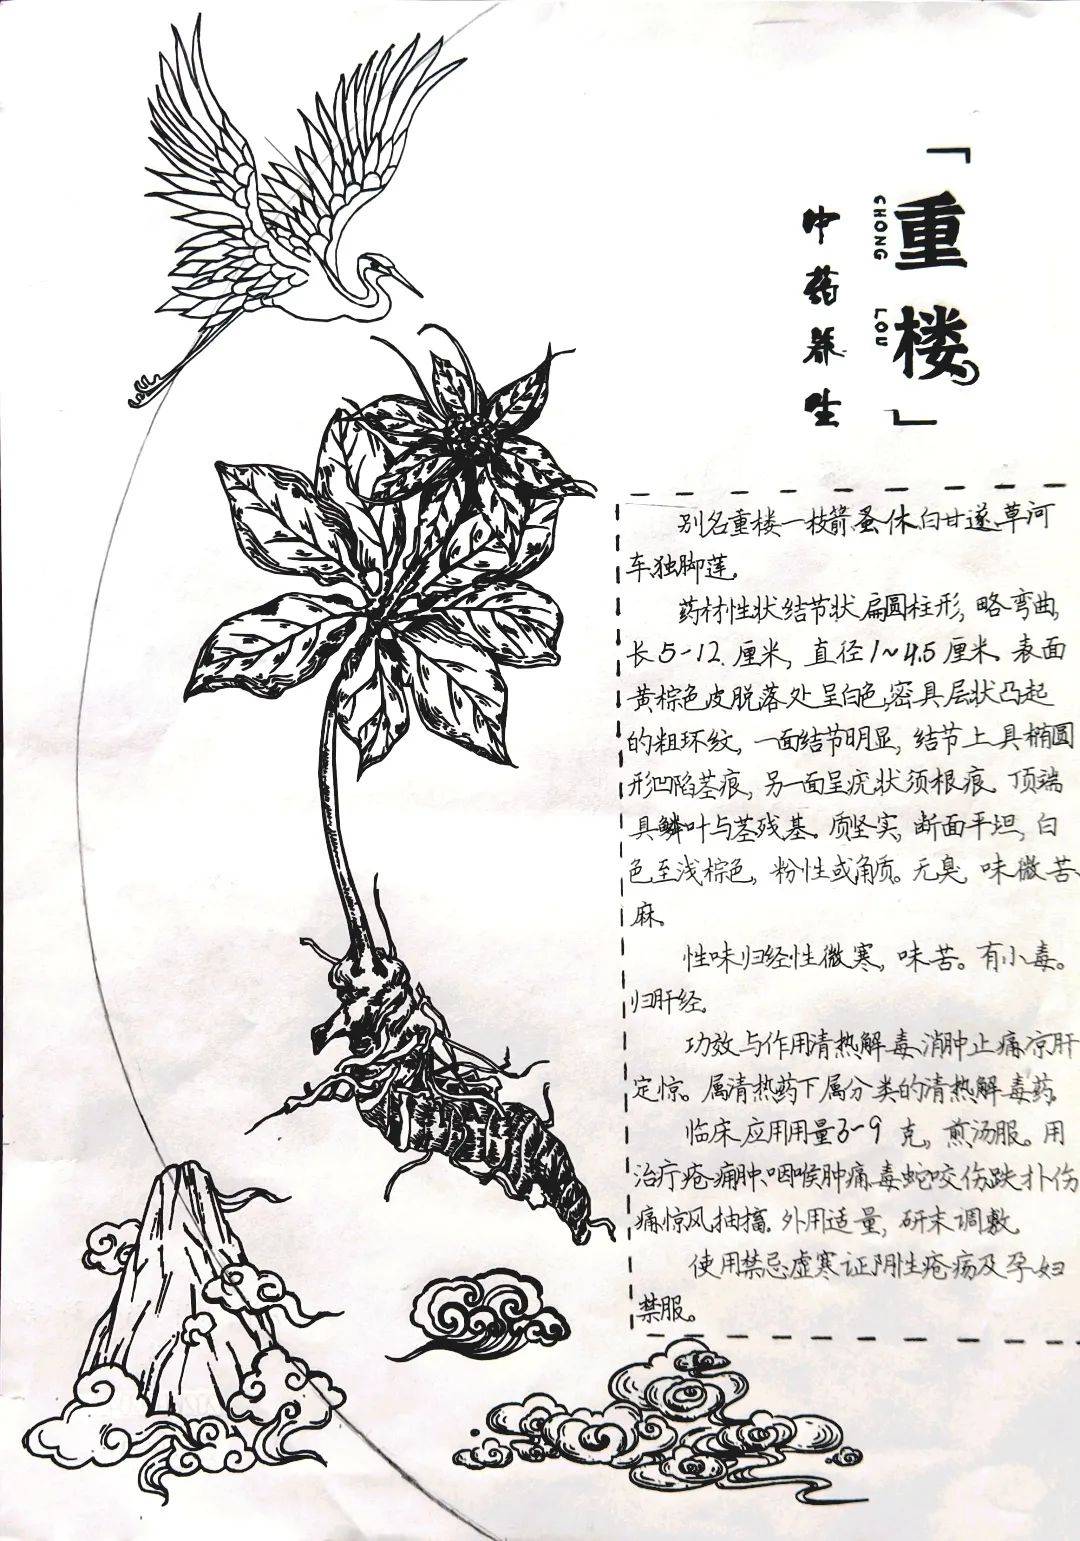 「重楼」
CHONG LOU
中药养生
别名重楼一枝箭蚤休白甘遂草河
车独脚莲。
药材性状结节状扁圆柱形，略弯曲，
长5-12.厘米，直径1~4.5厘米。表面
黄棕色皮脱落处呈白色，密具层状凸起
的粗环纹，一面结节明显，结节上具椭圆
形凹陷茎痕，另一面呈疣状须根痕。顶端
具鳞叶与茎残基。质坚实，断面平坦，白
色至浅棕色，粉性或角质。无臭，味微苦、
麻。
性味归经性微寒，味苦。有小毒。
归肝经。
功效与作用清热解毒、消肿止痛、凉肝
定惊。属清热药下属分类的清热解毒药。
临床应用用量3~9克，煎汤服。用
治疗疮痈肿、咽喉肿痛、毒蛇咬伤、跌扑伤
痛、惊风抽搐。外用适量，研末调敷。
使用禁忌虚寒证、阴性疮疡及孕妇
禁服。